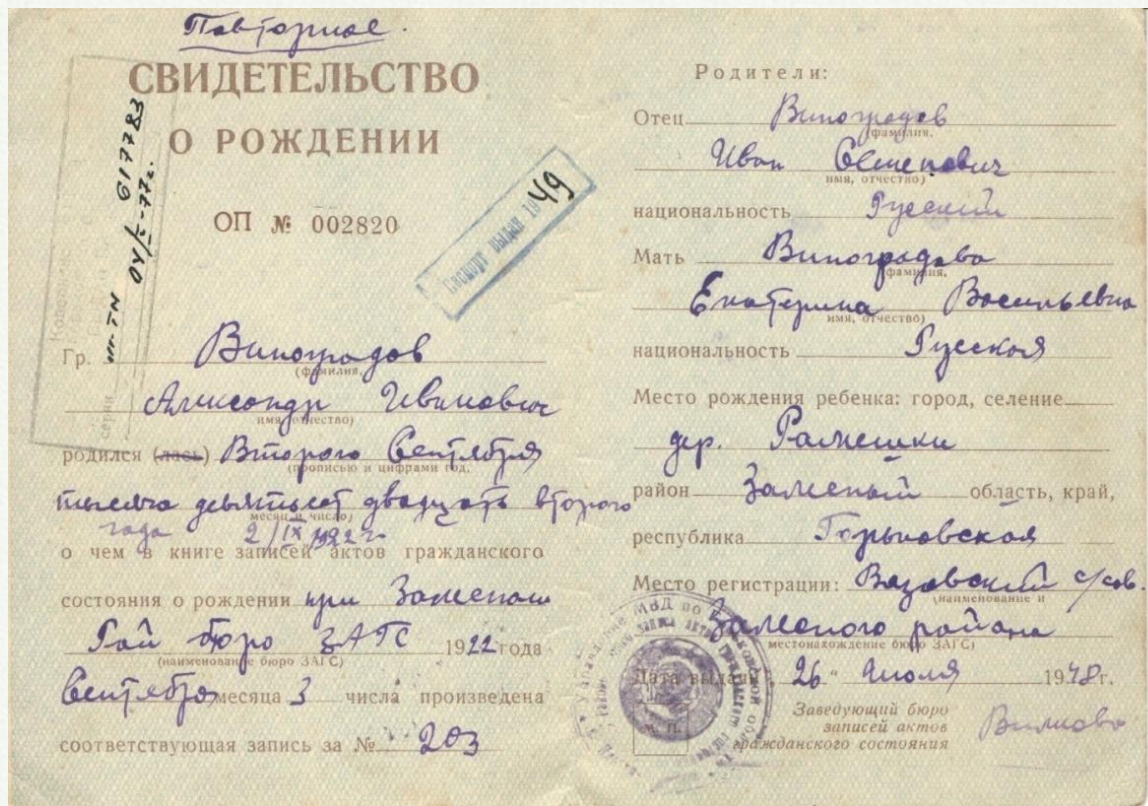 Повторное.
СВИДЕТЕЛЬСТВО
О РОЖДЕНИИ
ОП № 002820
617783
04/I-77г.
Паспорт выдан 1949
Гр. Виноградов
(фамилия,
Александр Иванович
имя, отчество)
родился (лась) Второго Сентября
(прописью и цифрами год,
тысяча девятьсот двадцать второго
месяц и число)
года 2/IX 1922 г.
о чем в книге записей актов гражданского
состояния о рождении при
бюро ЗАГС 1922 года
(наименование бюро ЗАГС)
Сентября месяца 3 числа произведена
соответствующая запись за № 203
Родители:
Отец Виноградов
фамилия,
Иван Семенович
имя, отчество)
национальность Русский
Мать Виноградова
фамилия,
Екатерина Васильевна
имя, отчество)
национальность Русская
Место рождения ребенка: город, селение
дер. Рамешки
район область, край,
республика Горьковская
Место регистрации: с/сов
(наименование и
района
местонахождение бюро ЗАГС)
Дата выдачи „26" Июля 1948 г.
Заведующий бюро
записей актов
гражданского состояния